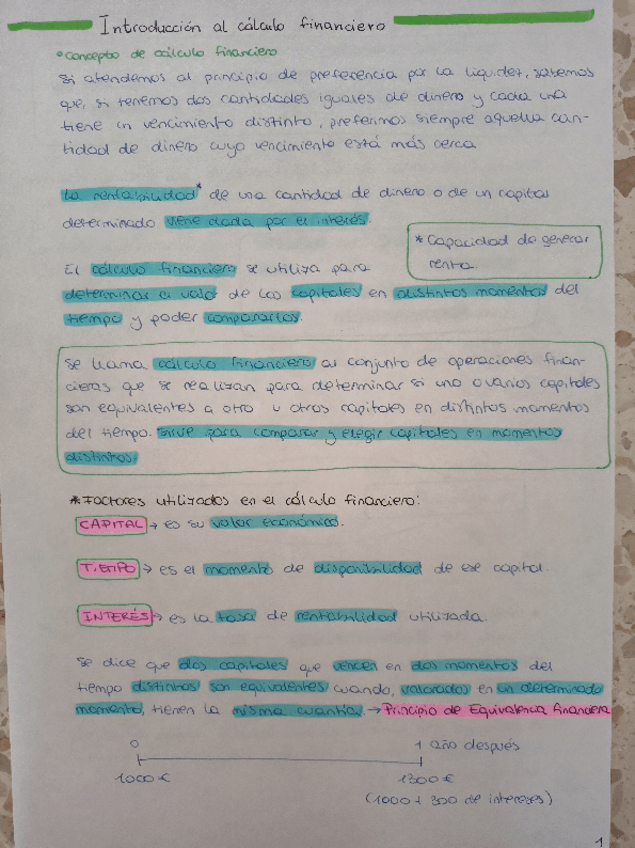 Introducción al cálculo financiero
°concepto de cálculo financiero
Si atendemos al principio de preferencia por la liquidez, sabemos
que, si tenemos dos cantidades iguales de dinero y cada una
tiene un vencimiento distinto, preferimos siempre aquella can-
tidad de dinero cuyo vencimiento está más cerca
La rentabilidad* de una cantidad de dinero o de un capital
determinado viene dada por el interés.
* Capacidad de generar
renta.
El cálculo financiero se utiliza para
determinar el valor de los capitales en distintos momentos del
tiempo y poder compararlos.
Se llama cálculo financiero al conjunto de operaciones finan-
cieras que se realizan para determinar si uno o varios capitales
son equivalentes a otro u otros capitales en distintos momentos
del tiempo. Sirve para comparar y elegir capitales en momentos
distintos.
*Factores utilizados en el cálculo financiero:
CAPITAL → es su valor económico.
TIEMPO → es el momento de disponibilidad de ese capital.
INTERÉS → es la tasa de rentabilidad utilizada.
Se dice que dos capitales que vencen en dos momentos del
tiempo distintos son equivalentes cuando, valorados en un determinado
momento, tienen la misma cuantía. → Principio de Equivalencia Financiera
0 1 año después
1000 € 1300 €
(1000 + 300 de intereses)
1